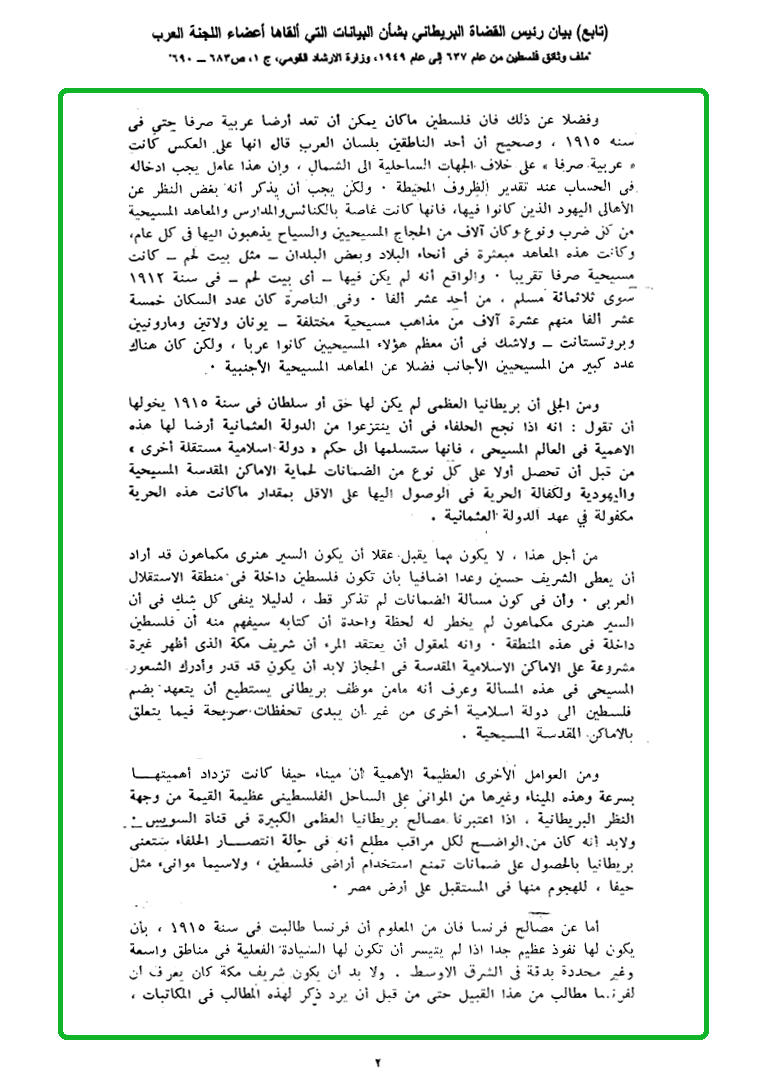 (تابع) بيان رئيس القضاة البريطاني بشأن البيانات التي ألقاها أعضاء اللجنة العرب
"ملف وثائق فلسطين من عام ٦٣٧ إلى عام ١٩٤٩، وزارة الارشاد القومي، ج ١، ص ٦٨٣ – ٦٩٠"
وفضلا عن ذلك فان فلسطين ماكان يمكن أن تعد أرضا عربية صرفا حتى فى
سنه ١٩١٥ ، وصحيح أن أحد الناطقين بلسان العرب قال انها على العكس كانت
« عربية صرفا » على خلاف الجهات الساحلية الى الشمال ، وإن هذا عامل يجب ادخاله
فى الحساب عند تقدير الظروف المحيطة ٠ ولكن يجب أن يذكر أنه بغض النظر عن
الأهالى اليهود الذين كانوا فيها، فانها كانت غاصة بالكنائس والمدارس والمعاهد المسيحية
من كل ضرب ونوع وكان آلاف من الحجاج المسيحيين والسياح يذهبون اليها فى كل عام،
وكانت هذه المعاهد مبعثرة فى أنحاء البلاد وبعض البلدان – مثل بيت لحم – كانت
مسيحية صرفا تقريبا ٠ والواقع أنه لم يكن فيها – أى بيت لحم – فى سنة ١٩١٢
سوى ثلاثمائة مسلم ، من أحد عشر ألفا ٠ وفى الناصرة كان عدد السكان خمسة
عشر ألفا منهم عشرة آلاف من مذاهب مسيحية مختلفة – يونان ولاتين ومارونيين
وبروتستانت – ولاشك فى أن معظم هؤلاء المسيحيين كانوا عربا ، ولكن كان هناك
عدد كبير من المسيحيين الأجانب فضلا عن المعاهد المسيحية الأجنبية ٠
ومن الجلى أن بريطانيا العظمى لم يكن لها حق أو سلطان فى سنة ١٩١٥ يخولها
أن تقول : انه اذا نجح الحلفاء فى أن ينتزعوا من الدولة العثمانية أرضا لها هذه
الاهمية فى العالم المسيحى ، فانها ستسلمها الى حكم « دولة اسلامية مستقلة أخرى »
من قبل أن تحصل أولا على كل نوع من الضمانات لحماية الاماكن المقدسة المسيحية
واليهودية ولكفالة الحرية فى الوصول اليها على الاقل بمقدار ماكانت هذه الحرية
مكفولة في عهد الدولة العثمانية .
من أجل هذا ، لا يكون مما يقبل عقلا أن يكون السير هنرى مكماهون قد أراد
أن يعطى الشريف حسين وعدا اضافيا بأن تكون فلسطين داخلة فى منطقة الاستقلال
العربى ٠ وأن فى كون مسالة الضمانات لم تذكر قط ، لدليلا ينفى كل شك فى أن
السير هنرى مكماهون لم يخطر له لحظة واحدة أن كتابه سيفهم منه أن فلسطين
داخلة فى هذه المنطقة ٠ وانه لمعقول أن يعتقد المرء أن شريف مكة الذى أظهر غيرة
مشروعة على الاماكن الاسلامية المقدسة فى الحجاز لابد أن يكون قد قدر وأدرك الشعور
المسيحى فى هذه المسالة وعرف أنه مامن موظف بريطانى يستطيع أن يتعهد بضم
فلسطين الى دولة اسلامية أخرى من غير أن يبدى تحفظات صريحة فيما يتعلق
بالاماكن المقدسة المسيحية .
ومن العوامل الأخرى العظيمة الأهمية أن ميناء حيفا كانت تزداد أهميتهــا
بسرعة وهذه الميناء وغيرها من الموانى على الساحل الفلسطينى عظيمة القيمة من وجهة
النظر البريطانية ، اذا اعتبرنا مصالح بريطانيا العظمى الكبيرة فى قناة السويس ٠
ولابد إنه كان من الواضح لكل مراقب مطلع أنه فى حالة انتصــار الحلفاء ستعنى
بريطانيا بالحصول على ضمانات تمنع استخدام أراضى فلسطين ، ولاسيما موانىء مثل
حيفا ، للهجوم منها فى المستقبل على أرض مصر ٠
أما عن مصالح فرنسا فان من المعلوم أن فرنسا طالبت فى سنة ١٩١٥ ، بأن
يكون لها نفوذ عظيم جدا اذا لم يتيسر أن تكون لها السيادة الفعلية فى مناطق واسعة
وغير محددة بدقة فى الشرق الاوسط . ولا بد أن يكون شريف مكة كان يعرف أن
لفرنسا مطالب من هذا القبيل حتى من قبل أن يرد ذكر لهذه المطالب فى المكاتبات ،
٢